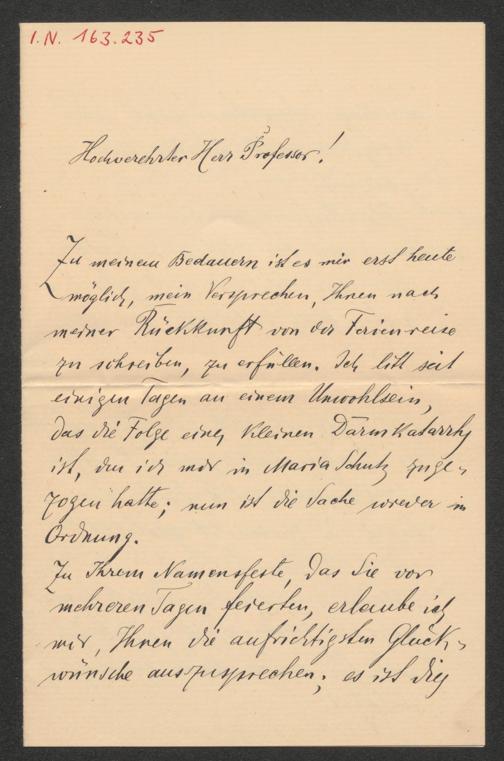 I.N. 163.235
Hochverehrter Herr Professor!
Zu meinem Bedauern ist es mir erst heute
möglich, mein Versprechen, Ihnen nach
meiner Rückkunft von der Ferienreise
zu schreiben, zu erfüllen. Ich litt seit
einigen Tagen an einem Unwohlsein,
das die Folge eines kleinen Darmkatarrhs
ist, den ich mir in Maria Schutz zuge-
zogen hatte; nun ist die Sache wieder in
Ordnung.
Zu Ihrem Namensfeste, das Sie vor
mehreren Tagen feierten, erlaube ich
mir, Ihnen die aufrichtigsten Glück-
wünsche auszusprechen; es ist dies